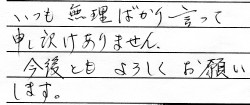 いつも無理ばかり言って
申し訳ありません。
今後ともよろしくお願い
します。